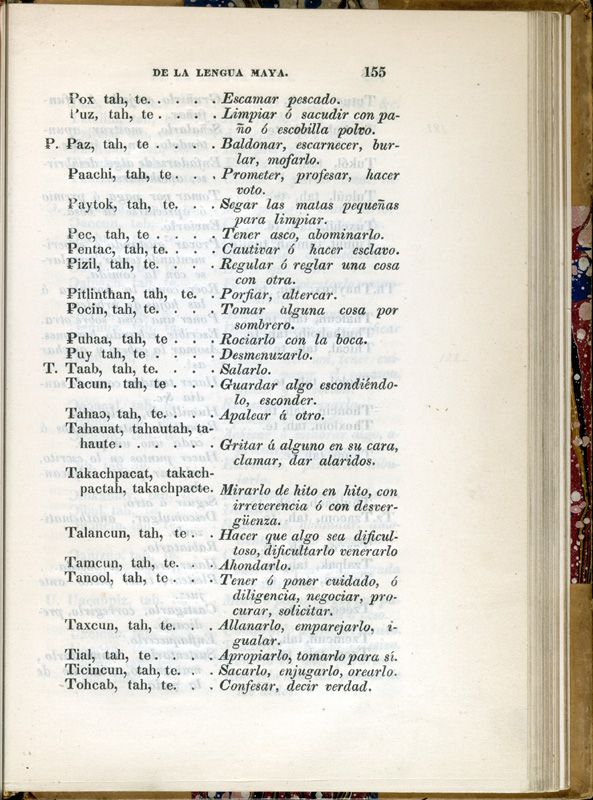 DE LA LENGUA MAYA. 155
Pox tah, te. . . . . Escamar pescado.
Puz, tah, te . . . . Limpiar ó sacudir con pa-
ño ó escobilla polvo.
P. Paz, tah, te . . . . . Baldonar, escarnecer, bur-
lar, mofarlo.
Paachi, tah, te . . . Prometer, profesar, hacer
voto.
Paytok, tah, te. . . . Segar las matas pequeñas
para limpiar.
Pec, tah, te . . . . . Tener asco, abominarlo.
Pentac, tah, te. . . . Cautivar ó hacer esclavo.
Pizil, tah, te. . . . . Regular ó reglar una cosa
con otra.
Pitlinthan, tah, te. . Porfiar, altercar.
Pocin, tah, te. . . . . Tomar alguna cosa por
sombrero.
Puhaa, tah, te . . . . Rociarlo con la boca.
Puy tah, te . . . . . Desmenuzarlo.
T. Taab, tah, te. . . . . Salarlo.
Tacun, tah, te . . . . Guardar algo escondiéndo-
lo, esconder.
Tahaɔ, tah, te. . . . . Apalear á otro.
Tahauat, tahautah, ta-
haute . . . . . . Gritar á alguno en su cara,
clamar, dar alaridos.
Takachpacat, takach-
pactah, takachpacte. Mirarlo de hito en hito, con
irreverencia ó con desver-
güenza.
Talancun, tah, te . . Hacer que algo sea dificul-
toso, dificultarlo venerarlo
Tamcun, tah, te. . . . Ahondarlo.
Tanool, tah, te . . . . Tener ó poner cuidado, ó
diligencia, negociar, pro-
curar, solicitar.
Taxcun, tah, te. . . . Allanarlo, emparejarlo, i-
gualar.
Tial, tah, te . . . . . Apropiarlo, tomarlo para sí.
Ticincun, tah, te. . . Sacarlo, enjugarlo, orearlo.
Tohcab, tah, te. . . Confesar, decir verdad.